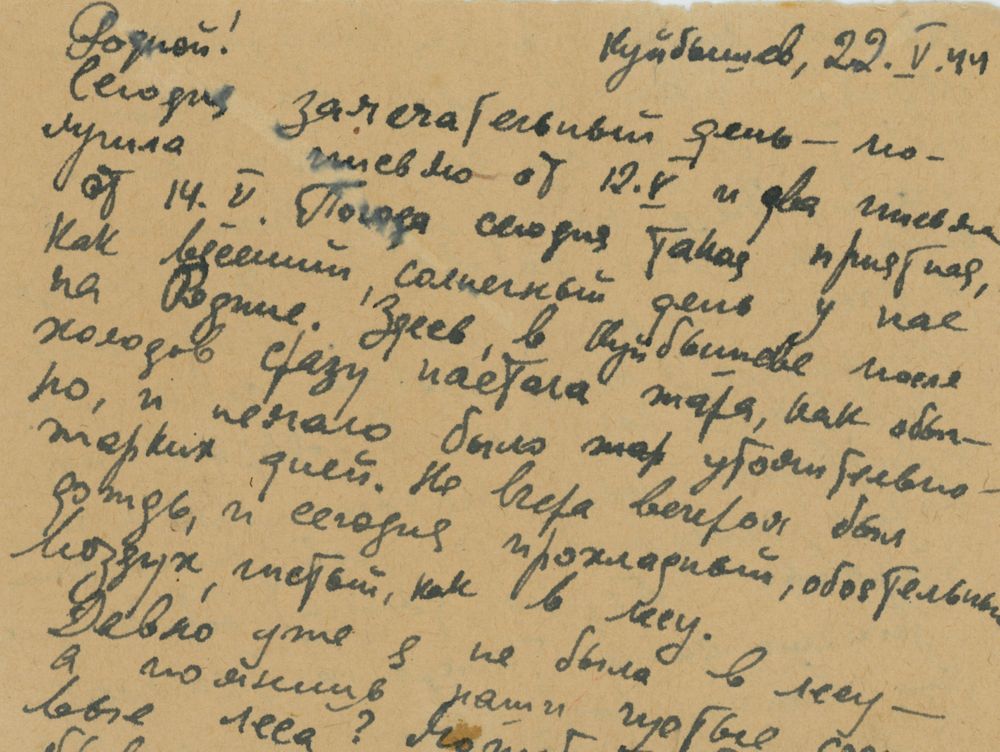 Родной!
Куйбышев, 22. V. 44
Сегодня замечательный день — по-
лучила письмо от 12. V и два письма
от 14. V. Погода сегодня такая приятная,
как весенний, солнечный день у нас
на Родине. Здесь, в Куйбышеве после
холодов сразу настала жара, как обыч-
но, и немало было жар утомительно-
жарких дней. Но вчера вечером был
дождь, и сегодня прохладный, обаятельный
воздух, чистый, как в лесу.
Давно уже я не была в лесу —
а помнишь наши густые
вые леса?